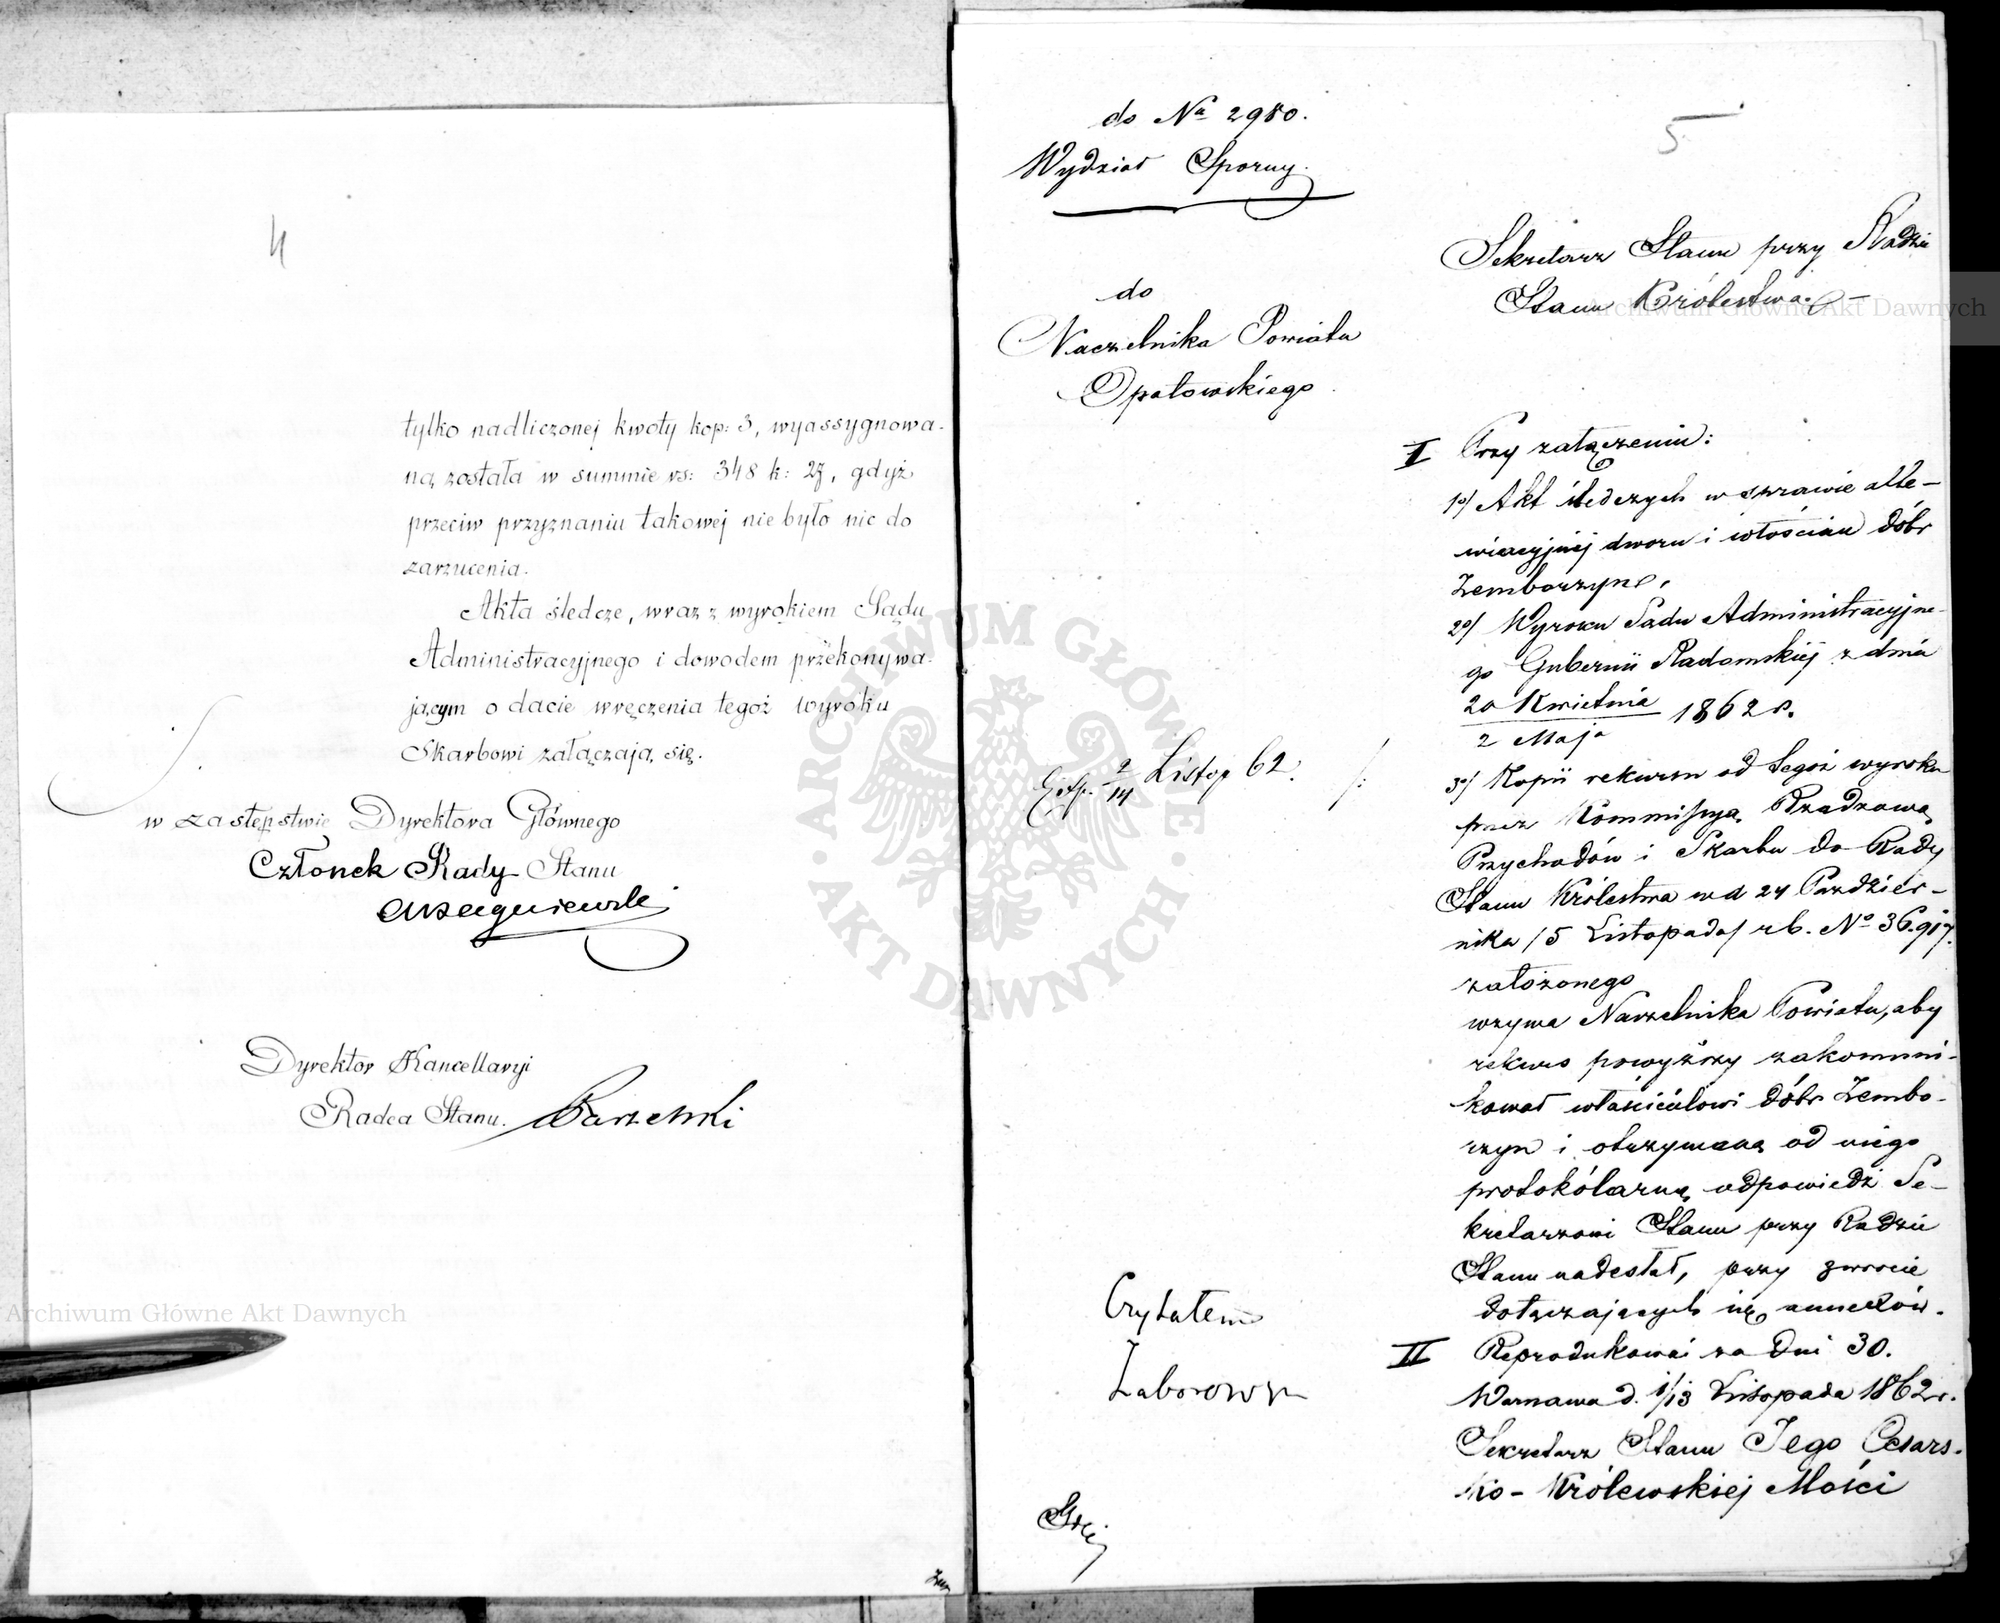 4
tylko nadliczonej kwoty kop: 3, wyassygnowa-
ną została w summie rs: 348 k: 27, gdyż
przeciw przyznaniu takowej nie było nic do
zarzucenia.
Akta śledcze, wraz z wyrokiem Sądu
Administracyjnego i dowodem przekonywa-
jącym o dacie wręczenia tegoż wyroku
Skarbowi załączają się.
w zastępstwie Dyrektora Głównego
Członek Rady Stanu
Dyrektor Kancellaryi
Radca Stanu.
5
do Nu 2980.
Wydział Sporny.
do
Naczelnika Powiatu
Opatowskiego
Sekretarz Stanu przy Radzie
Stanu Królestwa
I Przy załączeniu:
1o/ Akt śledczych w sprawie alle-
wiacyjnej dworu i włościan dóbr
Zemborzyn,
2o/ Wyroku Sadu Administracyjne-
go Gubernii Radomskiej z dnia
20 Kwietnia
2 Maja 1862 r.
3o/ Kopii rekursu od tegoż wyroku
przez Kommissyą Rządzową
Przychodów i Skarbu do Rady
Stanu Królestwa w d 24 Paździer-
nika /5 Listopada/ r b. No 36.917.
założonego
wzywa Naczelnika Powiatu, aby
rekurs powyższy zakommuni-
kował właścicielowi dóbr Zembo-
rzyn i otrzymaną od niego
protokólarną odpowiedź Se-
kretarzowi Stanu przy Radzie
Stanu nadesłał, przy zwrocie
dołączających się annexów.
II Reprodukować za dni 30.
Warszawa d. 1/13 Listopada 1862 r.
Sekretarz Stanu Jego Cesars-
ko-Królewskiej Mości
Exp. 2/14 Listop 62.
Czytałem
Archiwum Główne Akt Dawnych
Archiwum Główne Akt Dawnych
ARCHIWUM GŁÓWNE
AKT DAWNYCH